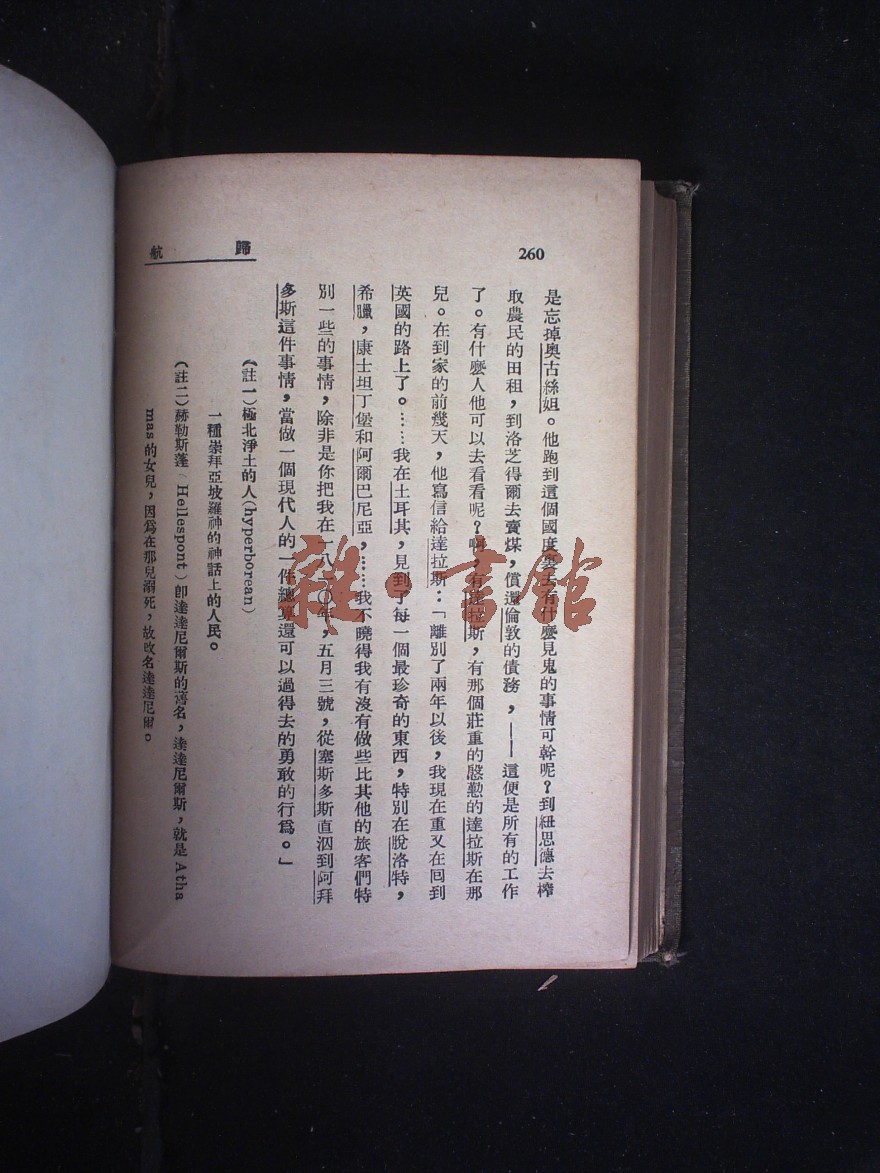 260
歸航
是忘掉奧古絲姐。他跑到這個國度裏去有什麽見鬼的事情可幹呢？到紐思德去榨
取農民的田租，到洛芝得爾去賣煤，償還倫敦的債務，——這便是所有的工作
了。有什麽人他可以去看看呢？啊，有達拉斯，有那個莊重的慇懃的達拉斯在那
兒。在到家的前幾天，他寫信給達拉斯：「離別了兩年以後，我現在重又在回到
英國的路上了。……我在土耳其，見到了每一個最珍奇的東西，特別在脫洛特，
希臘，康士坦丁堡和阿爾巴尼亞，……我不曉得我有沒有做些比其他的旅客們特
別一些的事情，除非是你把我在一八一〇年，五月三號，從塞斯多斯直泅到阿拜
多斯這件事情，當做一個現代人的一件總算還可以過得去的勇敢的行爲。」
（註一）極北淨土的人（hyperborean）
一種崇拜亞坡羅神的神話上的人民。
（註二）赫勒斯蓬（Hellespont）卽達達尼爾斯的舊名，達達尼爾斯，就是Atha
mas的女兒，因爲在那兒溺死，故改名達達尼爾。
雜·書館